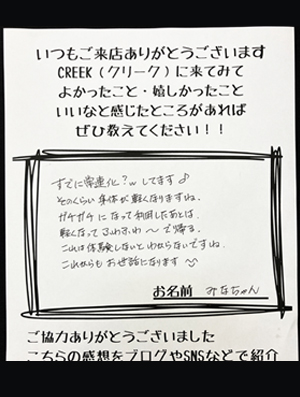 いつもご来店ありがとうございます
CREEK（クリーク）に来てみて
よかったこと・嬉しかったこと
いいなと感じたところがあれば
ぜひ教えてください！！
すでに常連化？wしてます♪
そのくらい身体が軽くなりますね。
ガチガチになって利用したあとは、
軽くなってふわふわ〜で帰る。
これは体験しないとわからないですね。
これからもお世話になります
お名前 みなちゃん
ご協力ありがとうございました
こちらの感想をブログやSNSなどで紹介